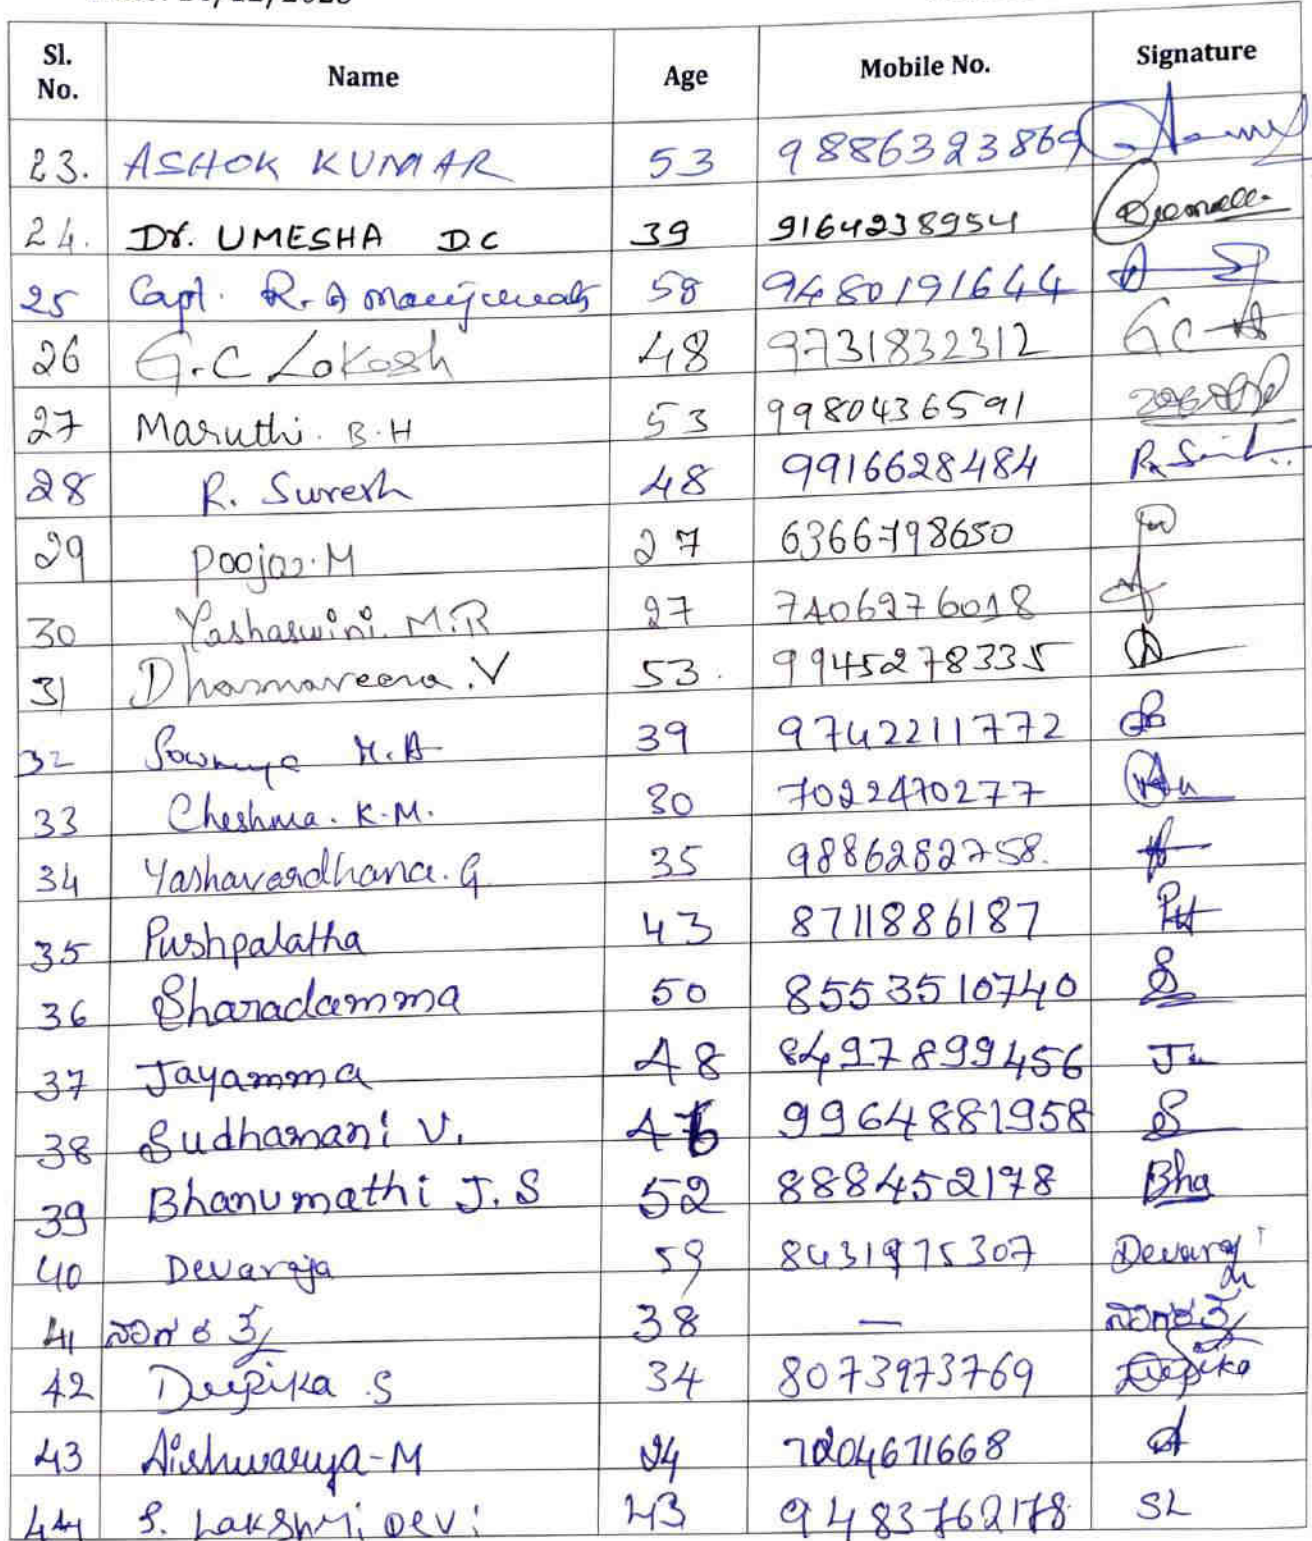 Sl. No. Name Age Mobile No. Signature
23. ASHOK KUMAR 53 9886323869
24. Dr. UMESHA D.C 39 9164238954
25 Capt. R. 58 9480191644
26 G.C Lokesh 48 9731832312 GC
27 Maruthi. B.H 53 9980436591
28 R. Suresh 48 9916628484
29 Pooja. M 27 6366798650
30 Yashaswini. M.R 27 7406276018
31 Dharmaveera. V 53. 9945278335
32 Sowmya H.A 39 9742211772
33 Cheshma. K.M. 30 7022470277
34 Yashavardhana. G 35 9886282758.
35 Pushpalatha 43 8711886187
36 Sharadamma 50 8553510740 S
37 Jayamma 48 8497899456
38 Sudhamani V. 46 9964881958 S
39 Bhanumathi J.S 52 8884452178 Bha
40 Devaraja 59 8431975307
41 38 —
42 Deepika S 34 8073973769 Deepika
43 Aishwarya-M 24 7204671668 A
44 S. Lakshmi Devi 43 9483762178 SL